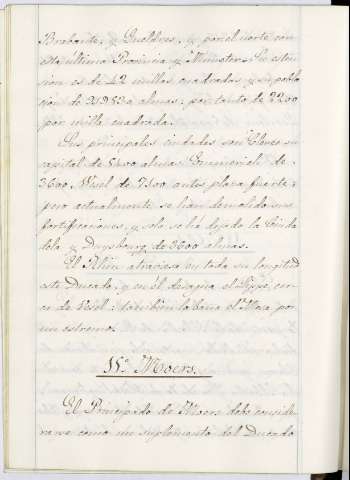 Brabante, y Gueldres, y por el norte con
esta ultima Provincia y Munster. Su esten
sion es de 42 millas cuadradas y su pobla
cion de de almas; por tanto de 2200
por milla cuadrada.
Sus principales ciudades son Cleves su
capital de 5400 almas Emmerich de
3600. Wesel de 7100 antes plaza fuerte;
pero actualmente se han demolido sus
fortificaciones, y solo se há dejado la Ciuda
dela y Duysbourg de 3600 almas.
El Rhin atraviesa en toda su longitud
este Ducado, y en él desagua el Lippe, cer
ca de Wesel: tambien lo baña el Mosa por
un estremo.
Moers.
El Principado de Moers debe conside
rarse como un suplemento del Ducado